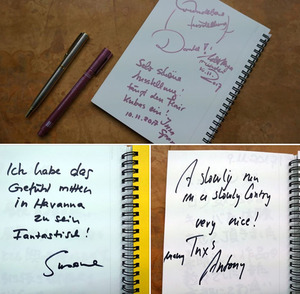 Danke!
Sehr schöne
Ausstellung!
Kubas ein!
10.11.2017
Ich habe das
Gefühl mitten
in Havanna
zu sein
Fantastisch!
Simone
A slowly run
in a slowly Contry
very nice!
many Tnx's
Antony